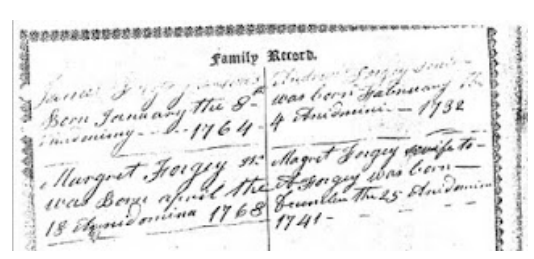 Family Record.
James Forgey
Born January the 8th
1764
Margret Forgey
was Born april the
18 Annidomina 1768
Andrew Forgey
was born Februeary the
4 Anidomini – 1732
Magret Forgey wife to –
A Forgey was born –
the 25 Anidomini
1741 –